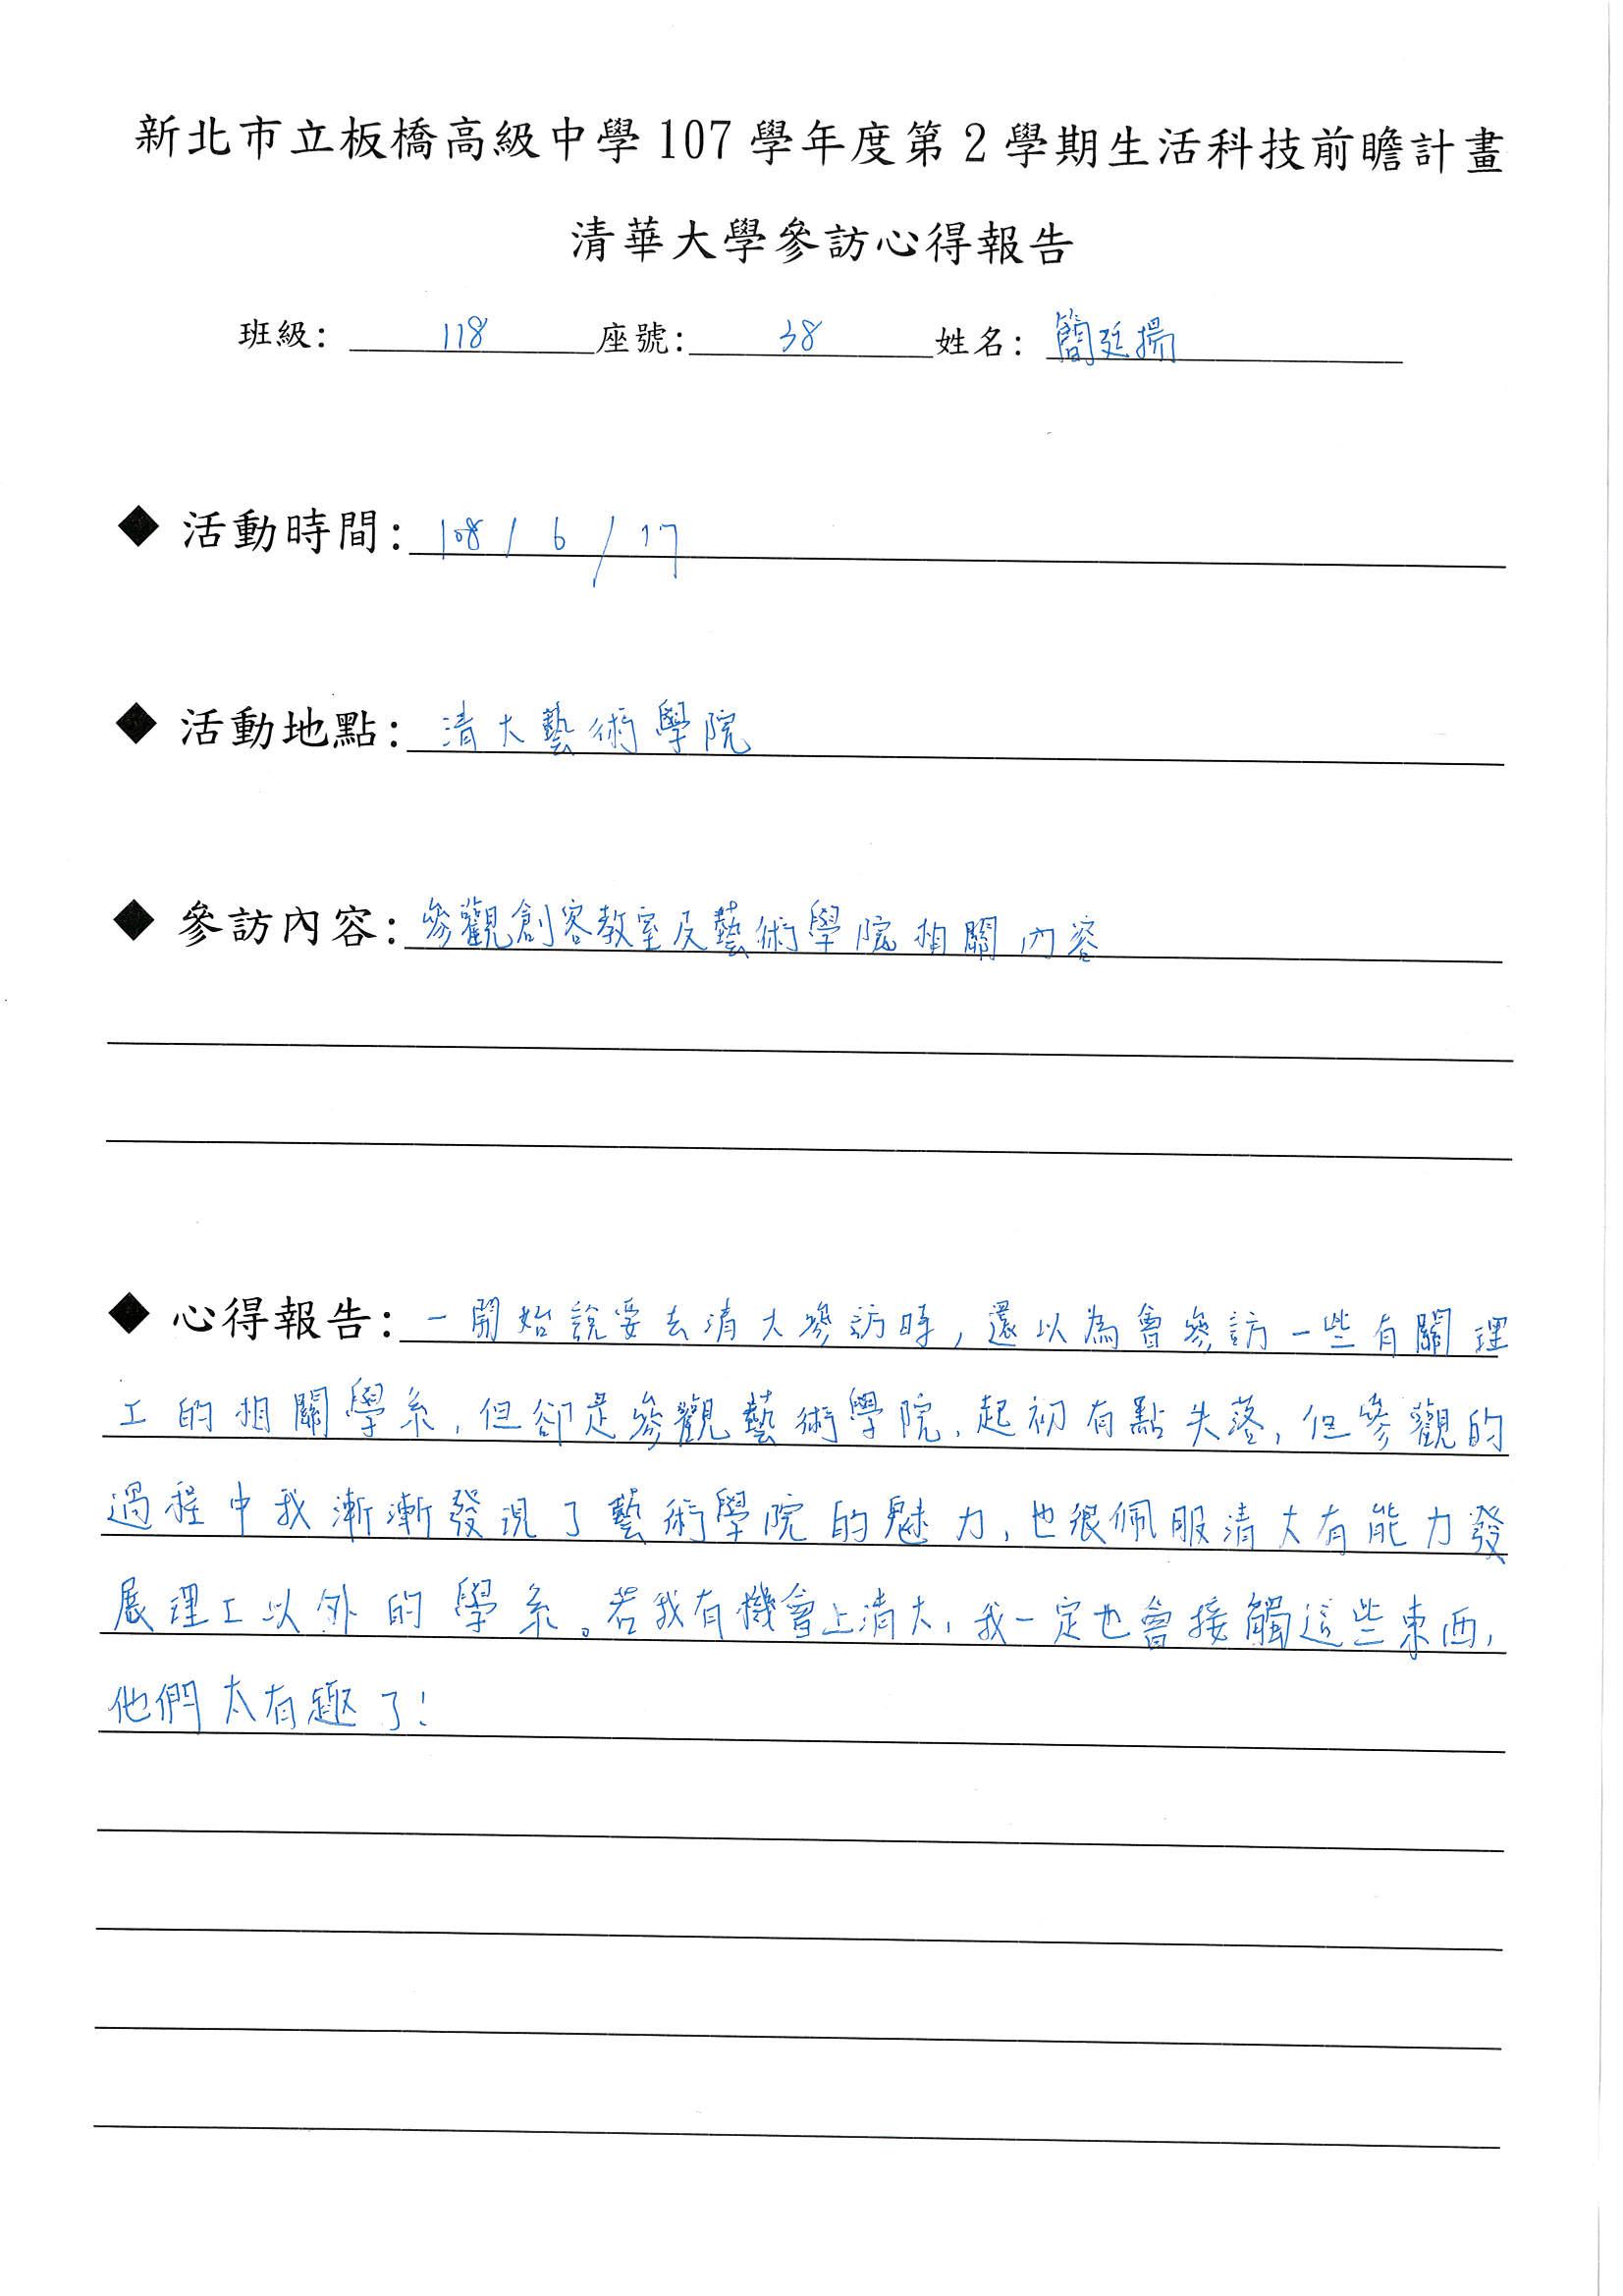 新北市立板橋高級中學107學年度第2學期生活科技前瞻計畫
清華大學參訪心得報告
班級：118座號：38姓名：簡廷揚
◆ 活動時間：108/6/17
◆ 活動地點：清大藝術學院
◆ 參訪內容：參觀創客教室及藝術學院相關內容
◆ 心得報告：一開始說要去清大參訪時，還以為會參訪一些有關理
工的相關學系，但卻是參觀藝術學院，起初有點失落，但參觀的
過程中我漸漸發現了藝術學院的魅力，也很佩服清大有能力發
展理工以外的學系。若我有機會上清大，我一定也會接觸這些東西，
他們太有趣了！